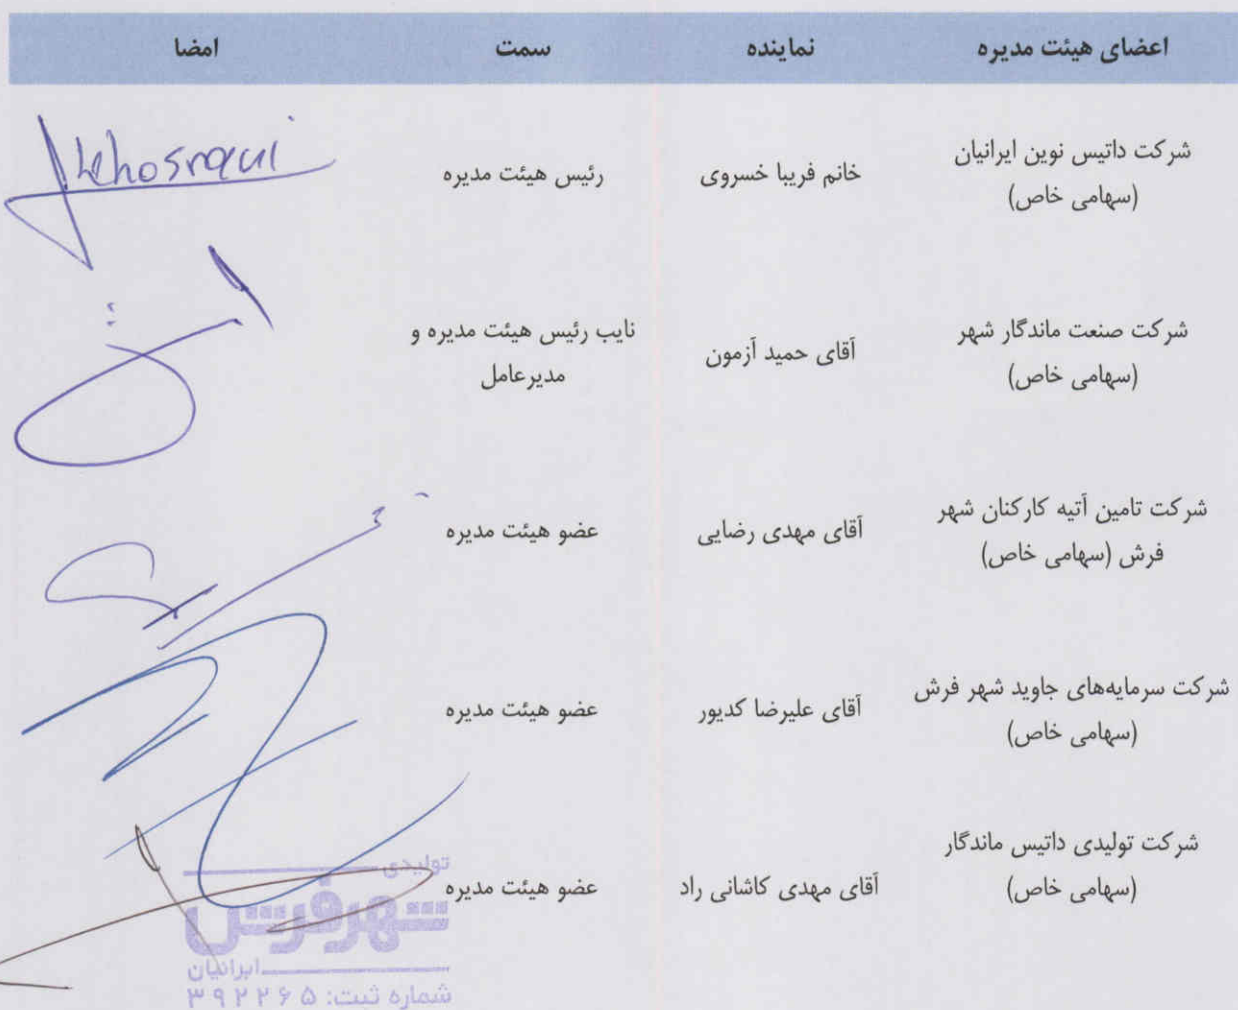 اعضای هیئت مدیره نماینده سمت امضا
شرکت داتیس نوین ایرانیان
(سهامی خاص)
خانم فریبا خسروی
رئیس هیئت مدیره
khosravi
شرکت صنعت ماندگار شهر
(سهامی خاص)
آقای حمید آزمون
نایب رئیس هیئت مدیره و
مدیرعامل
شرکت تامین آتیه کارکنان شهر
فرش (سهامی خاص)
آقای مهدی رضایی
عضو هیئت مدیره
شرکت سرمایه‌های جاوید شهر فرش
(سهامی خاص)
آقای علیرضا کدیور
عضو هیئت مدیره
شرکت تولیدی داتیس ماندگار
(سهامی خاص)
آقای مهدی کاشانی راد
عضو هیئت مدیره
تولیدی
شهرفرش
ایرانیان
شماره ثبت: ۳۹۲۲۶۵